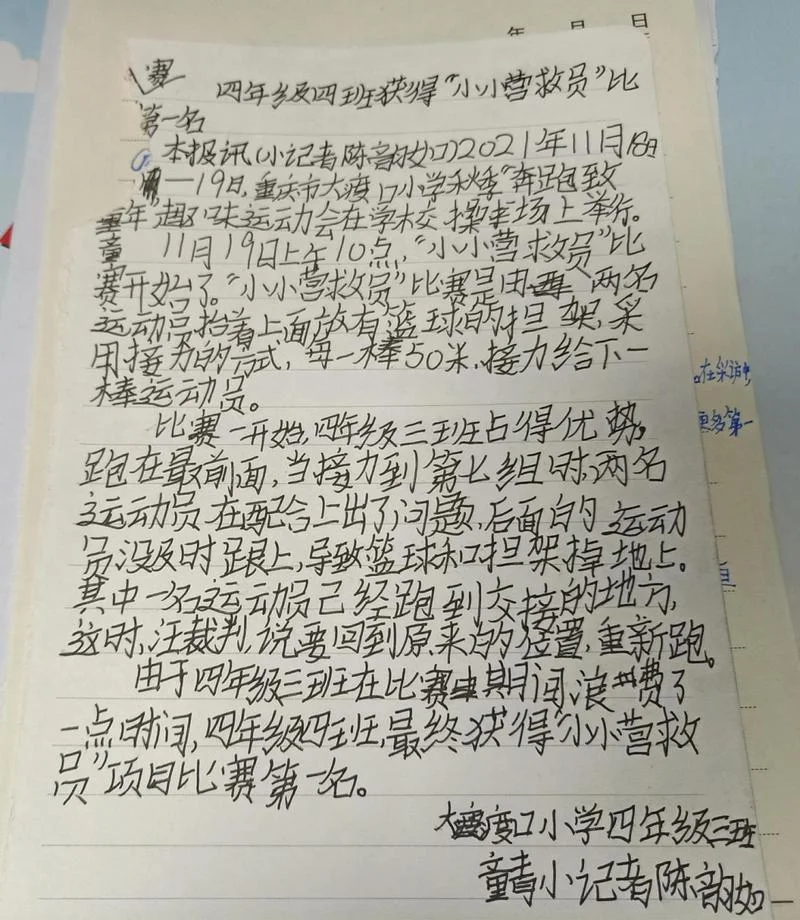 年 月 日
赛
四年级四班获得“小小营救员”比
第一名
本报讯(小记者陈韵如)2021年11月18日
—19日,重庆市大渡口小学秋季“奔跑致
童年”趣味运动会在学校操场上举行。
11月19日上午10点,“小小营救员”比
赛开始了。“小小营救员”比赛是用两名
运动员抬着上面放有篮球的担架,采
用接力的方式,每一棒50米,接力给下一
棒运动员。
比赛一开始,四年级三班占得优势,
跑在最前面,当接力到第七组时,两名
运动员在配合上出了问题,后面的运动
员没及时跟上,导致篮球和担架掉地上。
其中一名运动员已经跑到交接的地方,
这时,汪裁判,说要回到原来的位置,重新跑。
由于四年级三班在比赛期间浪费了
一点时间,四年级四班,最终获得“小小营救
员”项目比赛第一名。
大渡口小学四年级三班
小记者陈韵如
在采访中,
更多第一